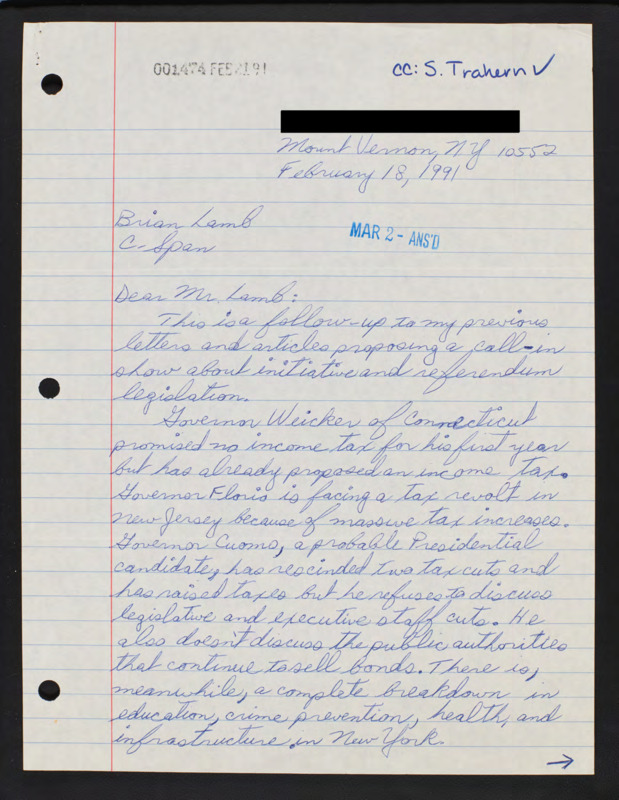 001474 FEB 21 91
cc: S. Trahern ✓
Mount Vernon, NY 10552
February 18, 1991
Brian Lamb
C-Span
MAR 2 - ANS'D
Dear Mr. Lamb:
This is a follow-up to my previous
letters and articles proposing a call-in
show about initiative and referendum
legislation.
Governor Weicker of Connecticut
promised no income tax for his first year
but has already proposed an income tax.
Governor Florio is facing a tax revolt in
New Jersey because of massive tax increases.
Governor Cuomo, a probable Presidential
candidate, has rescinded two tax cuts and
has raised taxes but he refuses to discuss
legislative and executive staff cuts. He
also doesn't discuss the public authorities
that continue to sell bonds. There is,
meanwhile, a complete breakdown in
education, crime prevention, health, and
infrastructure in New York.
→